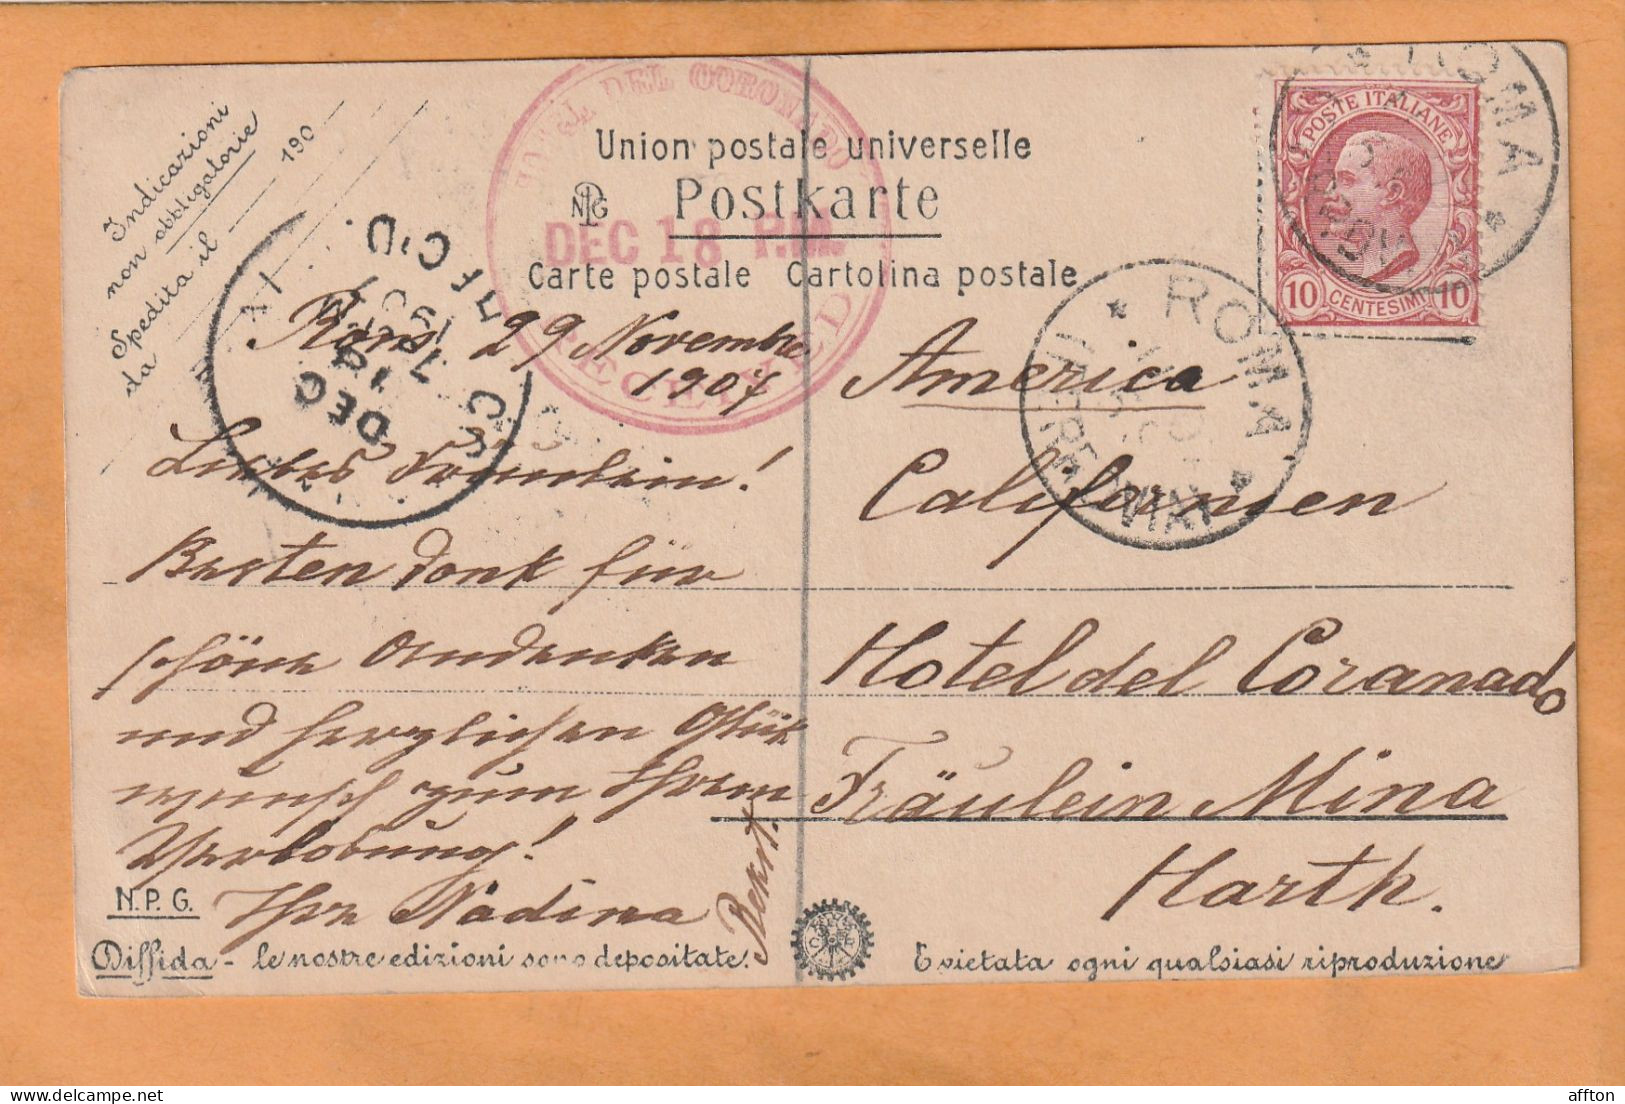 Indicazioni
non obbligatorie
Spedita il
da
190
HOTEL DEL CORONADO
DEC 18 P.M.
RECEIVED
Union postale universelle
NPG Postkarte
Carte postale Cartolina postale
POSTE ITALIANE
10 CENTESIMI 10
ROMA
ROMA
FERROVIA
REC'D.
DEC
18
1907
Rom, 29 Novembre
1907
Liebes Fräulein!
Besten Dank für
schöne Andenken
und herzlichen Glück
wunsch zum Ihrem
Verlobung!
Ihre Nadina
America
Californien
Hotel del Coranado
Fräulein Mina
Harth.
N.P.G.
Diffida - le nostre edizioni sono depositate.
E vietata ogni qualsiasi riproduzione
affton